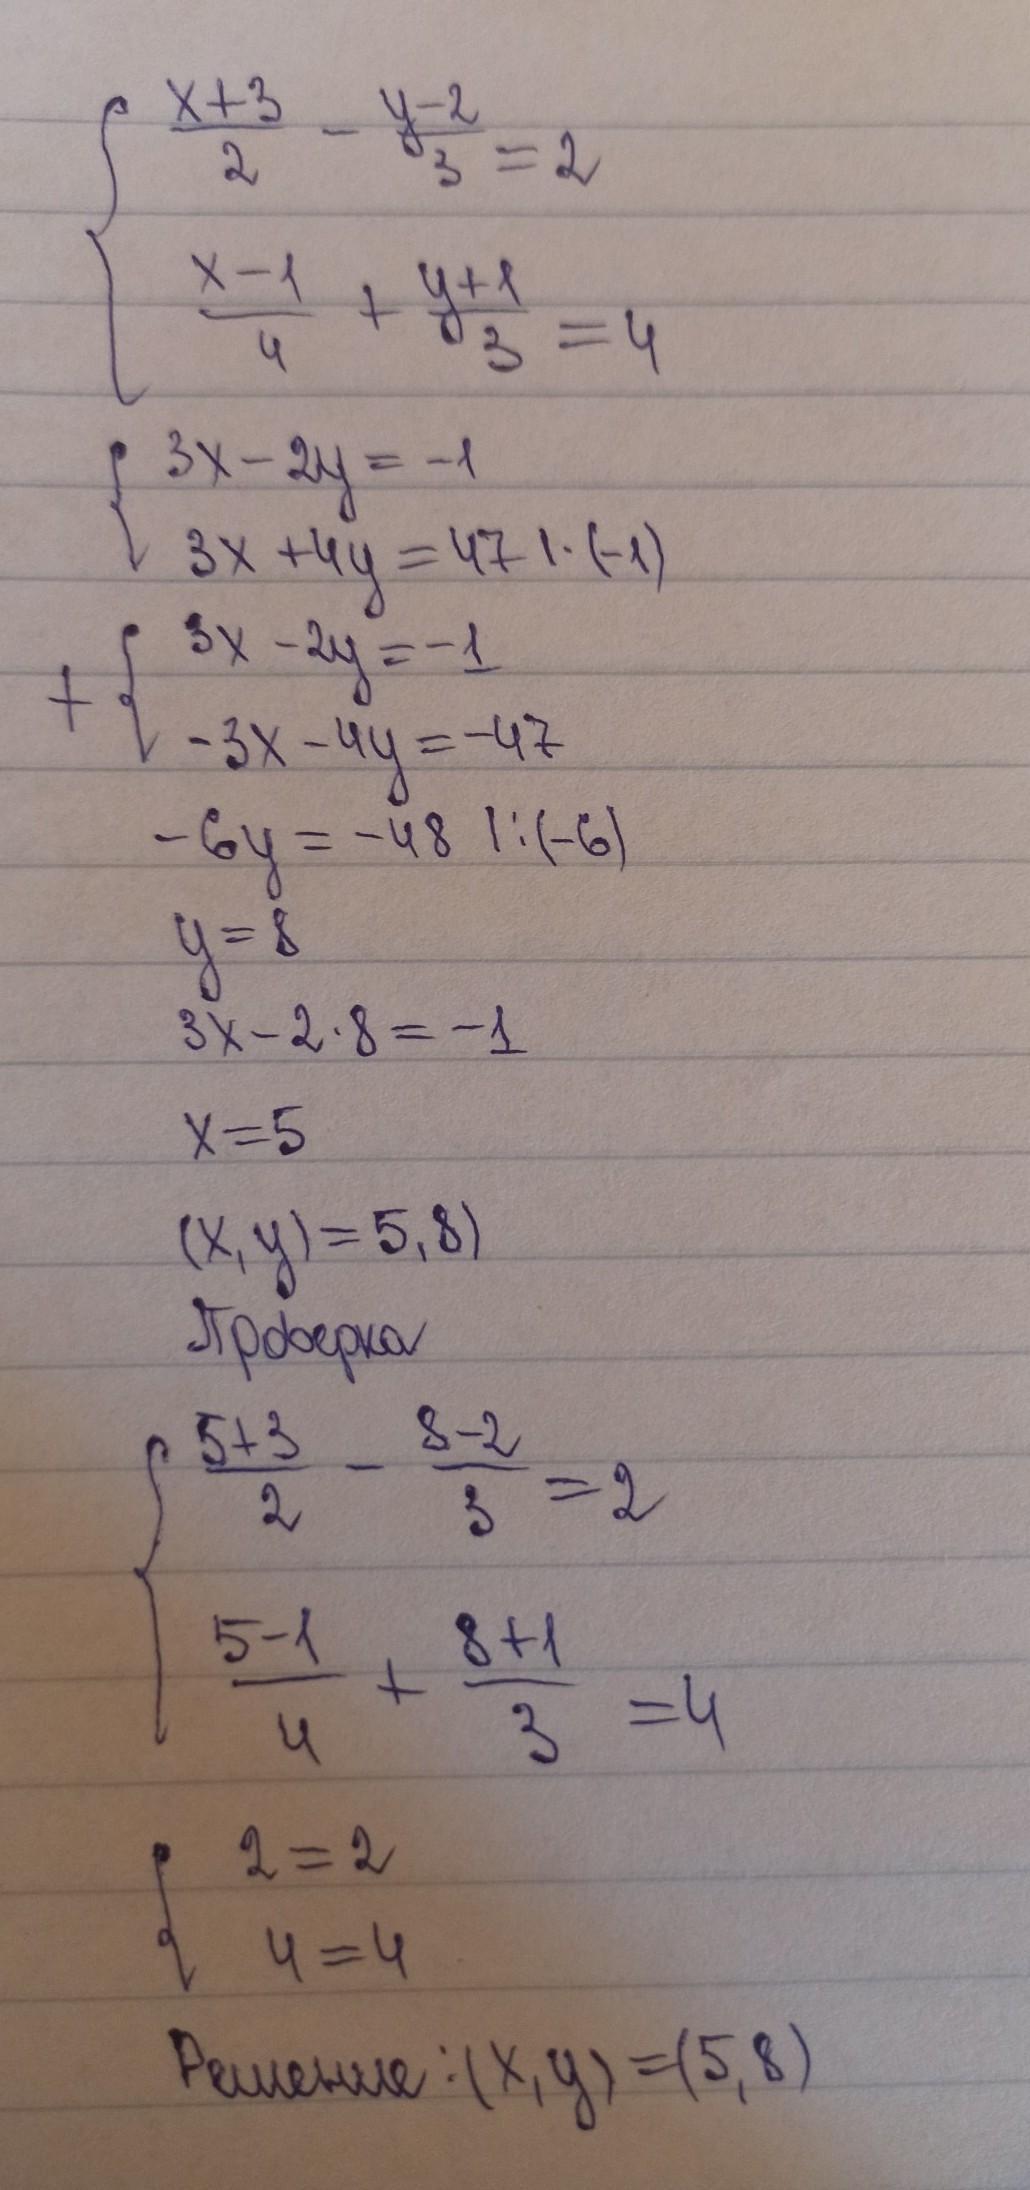 { (x+3)/2 - (y-2)/3 = 2
(x-1)/4 + (y+1)/3 = 4
{ 3x - 2y = -1
3x + 4y = 47 | · (-1)
+ { 3x - 2y = -1
-3x - 4y = -47
-6y = -48 | : (-6)
y = 8
3x - 2 · 8 = -1
x = 5
(x, y) = 5, 8)
Проверка
{ (5+3)/2 - (8-2)/3 = 2
(5-1)/4 + (8+1)/3 = 4
{ 2 = 2
4 = 4
Решение : (x, y) = (5, 8)